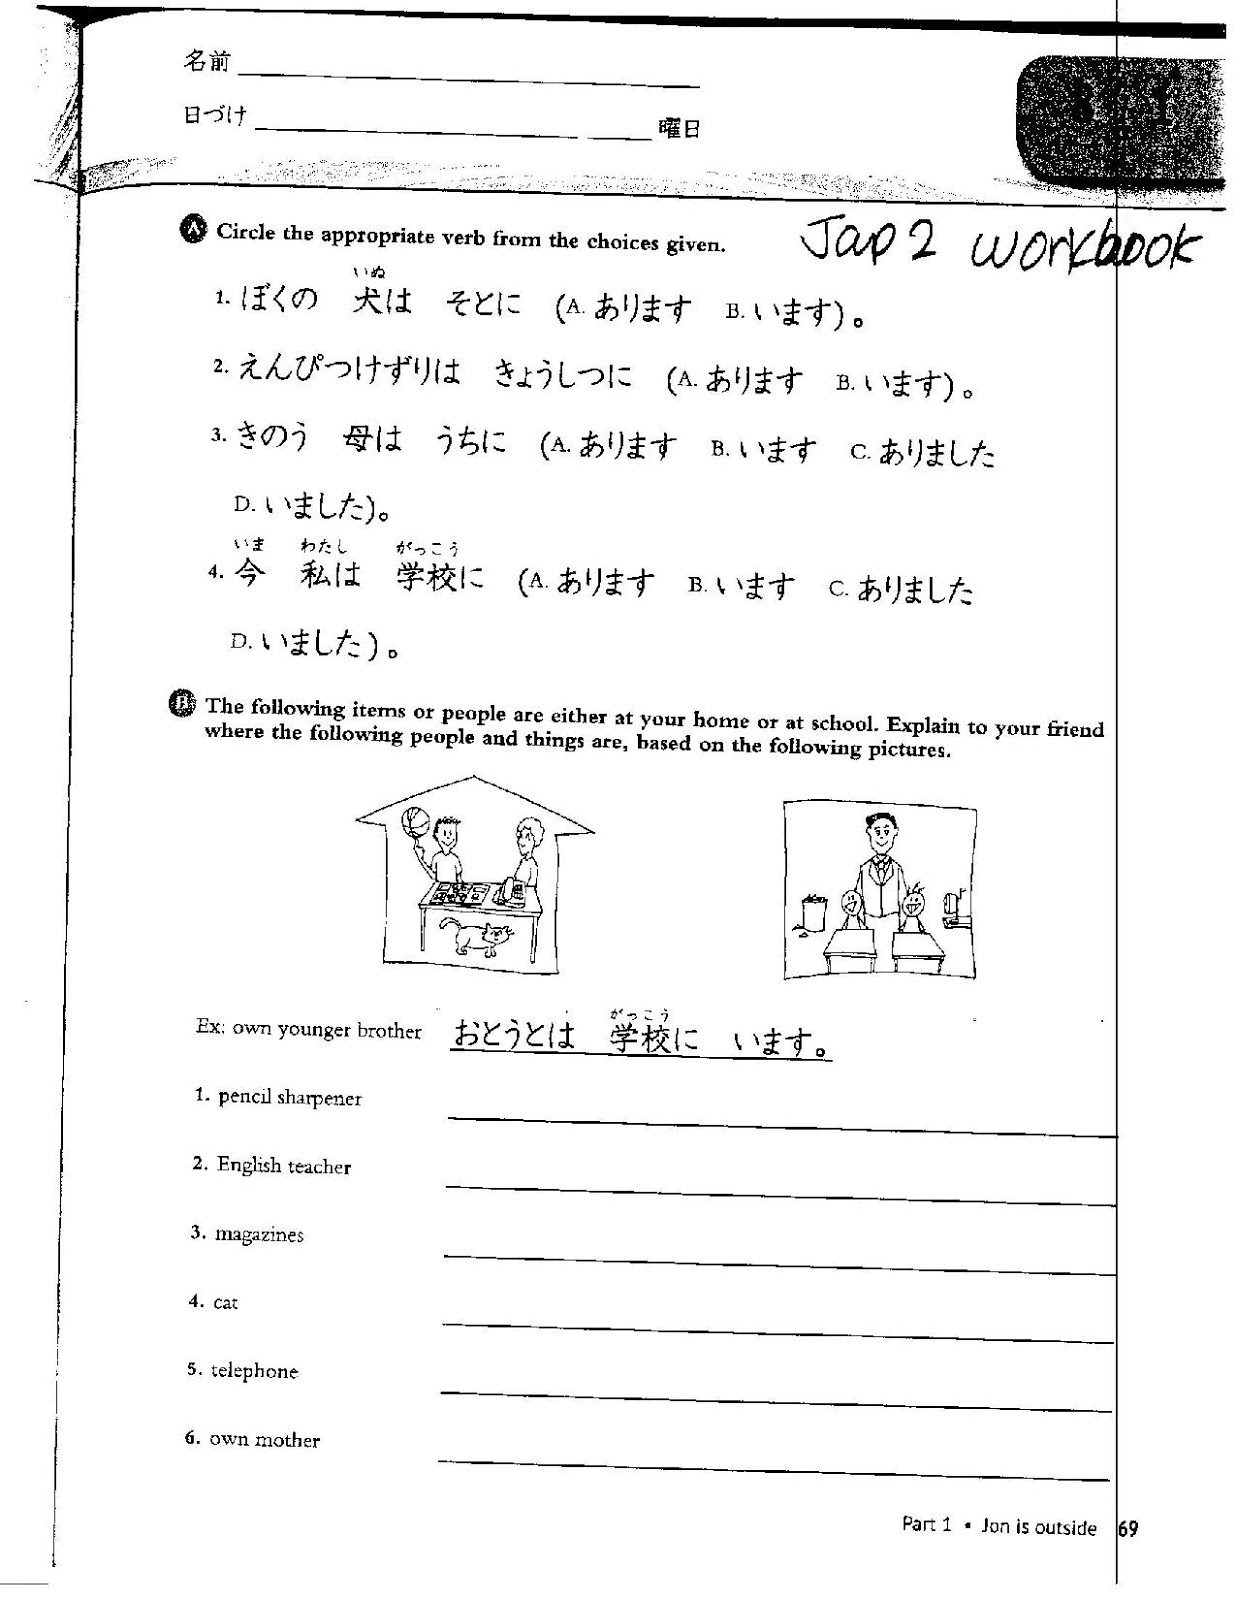 名前
日づけ 曜日
A Circle the appropriate verb from the choices given.
Jap 2 workbook
いぬ
1. ぼくの 犬は そとに (A. あります B. います)。
2. えんぴつけずりは きょうしつに (A. あります B. います)。
3. きのう 母は うちに (A. あります B. います C. ありました
D. いました)。
いま わたし がっこう
4. 今 私は 学校に (A. あります B. います C. ありました
D. いました)。
B The following items or people are either at your home or at school. Explain to your friend
where the following people and things are, based on the following pictures.
がっこう
Ex: own younger brother おとうとは 学校に います。
1. pencil sharpener
2. English teacher
3. magazines
4. cat
5. telephone
6. own mother
Part 1 • Jon is outside 69